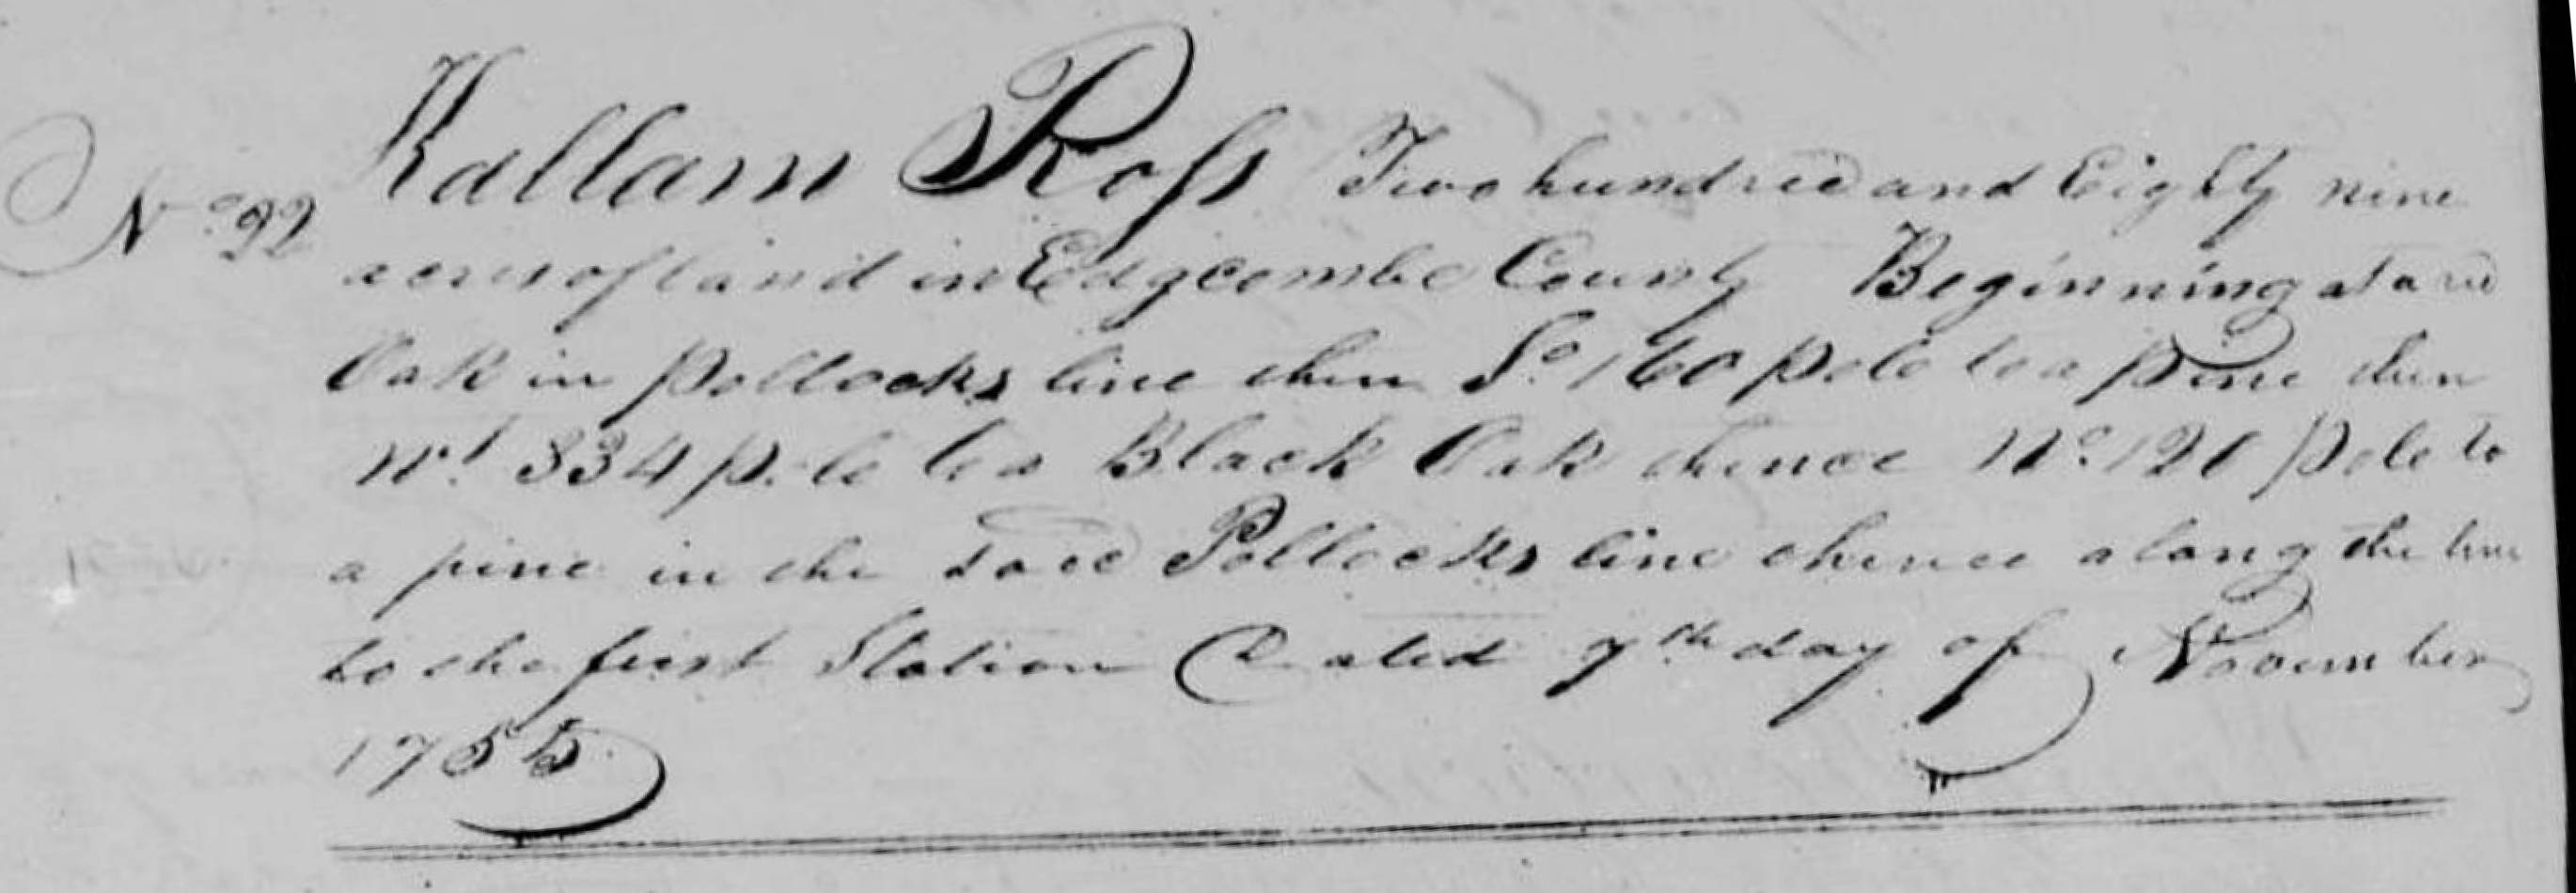 No 92 Kallam Ross Two hundred and Eighty nine
acres of land in Edgcombe County Beginning at a red
Oak in pollocks line then So 160 pole to a pine then
Wt 334 pole to a Black Oak thence No 120 pole to
a pine in the said Pollocks line thence along the line
to the first Station Dated 7th day of November
1755